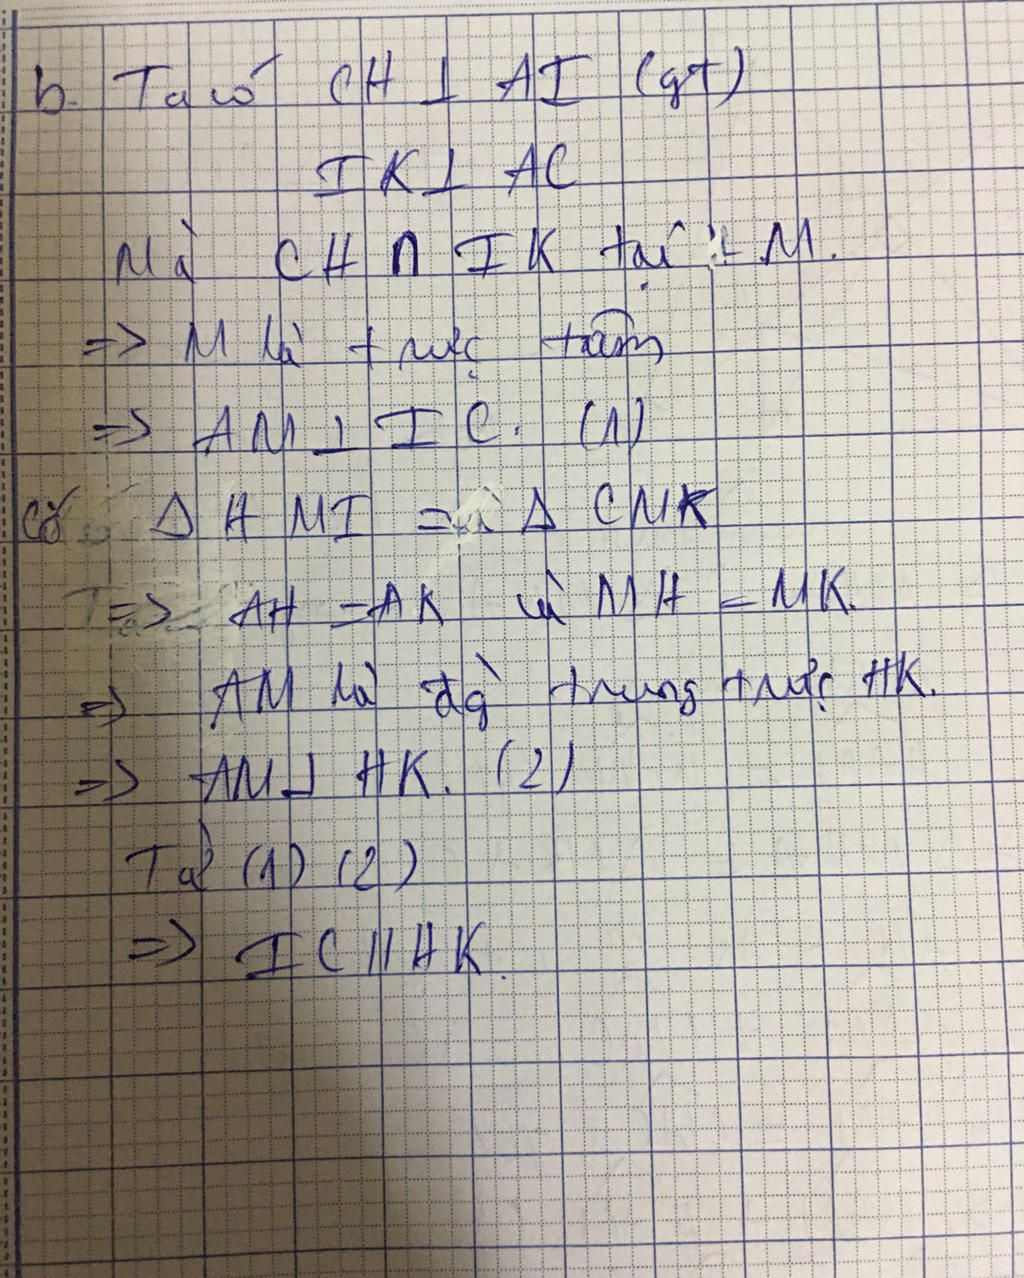 b. Ta có CH ⊥ AI (gt)
IK ⊥ AC
Mà CH ∩ IK tại M.
=> M là trực tâm
=> AM ⊥ IC. (1)
Có Δ HMI = Δ CMK
=> AH = AK và MH = MK.
=> AM là đg` trung trực HK.
=> AM ⊥ HK. (2)
Từ (1) (2)
=> IC // HK.